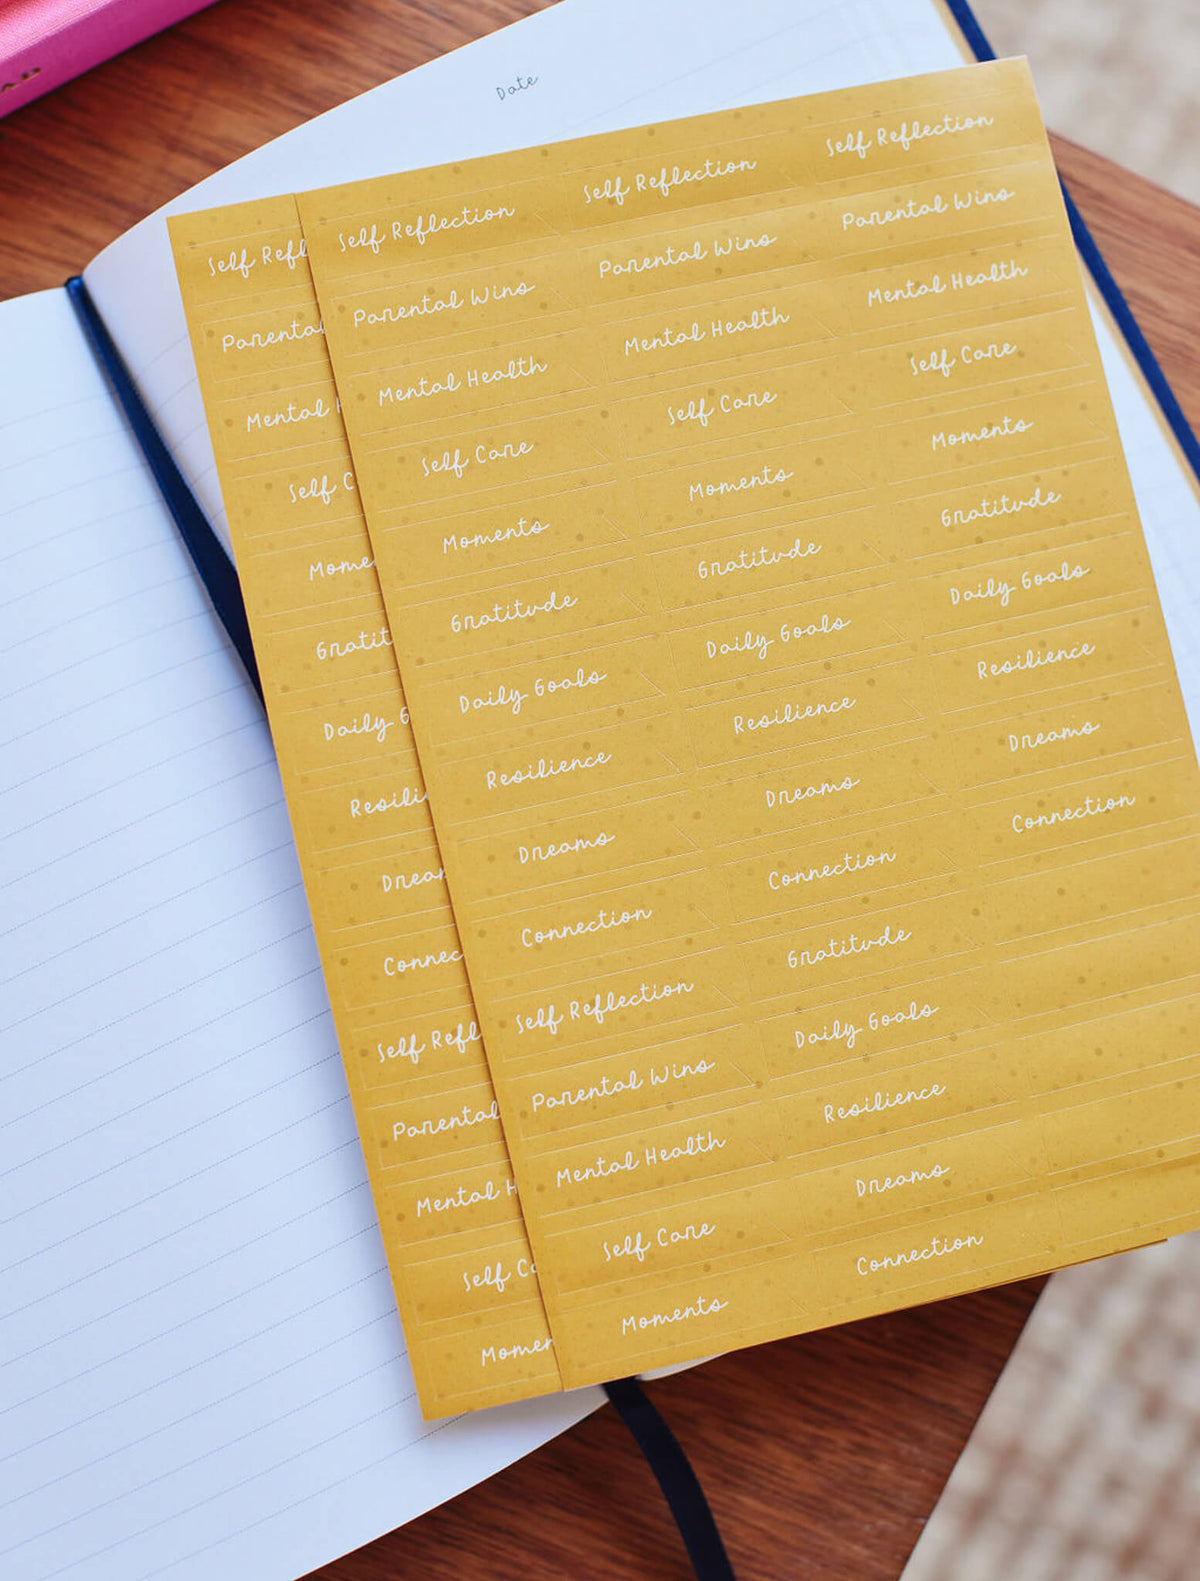 Date
Self Reflection Self Reflection Self Reflection
Parental Wins Parental Wins Parental Wins
Mental Health Mental Health Mental Health
Self Care Self Care Self Care
Moments Moments Moments
Gratitude Gratitude Gratitude
Daily Goals Daily Goals Daily Goals
Resilience Resilience Resilience
Dreams Dreams Dreams
Connection Connection Connection
Self Reflection Gratitude
Parental Wins Daily Goals
Mental Health Resilience
Self Care Dreams
Moments Connection
Self Refl
Parental
Mental
Self C
Mome
Gratit
Daily G
Resili
Dream
Connec
Self Refl
Parental
Mental H
Self Ca
Momen